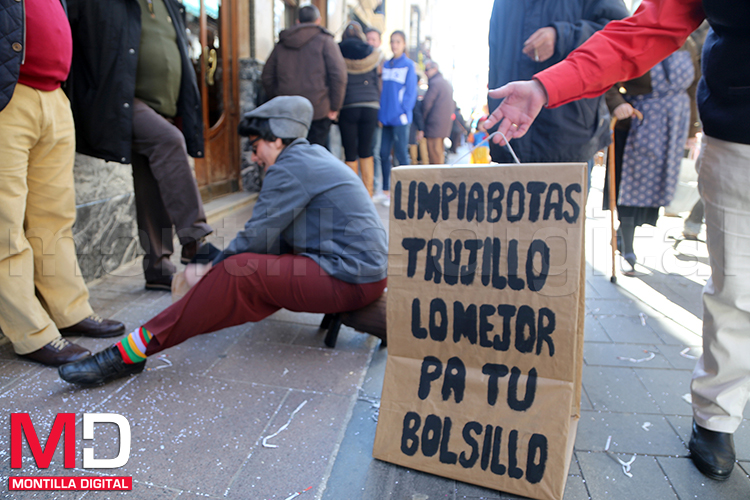 LIMPIABOTAS
TRUJILLO
LO MEJOR
PA TU
BOLSILLO
MD
MONTILLA DIGITAL
montilla digital